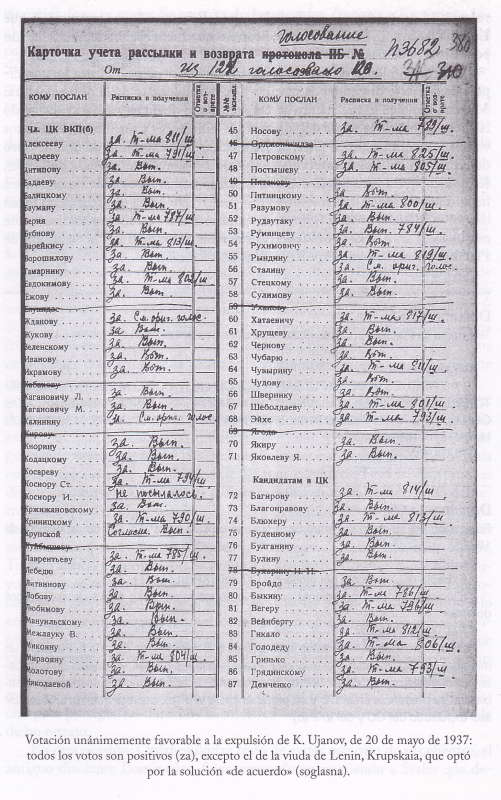 голосование
Карточка учета рассылки и возврата протокола ПБ № П3682 380
От из 122 голосовало 120.
КОМУ ПОСЛАН
Расписка в получении
Отметка о воз-врате
№№ экземпл.
Чл. ЦК ВКП(б)
Алексееву за. Т-ма 811/ш
Андрееву за. Т-ма 791/ш
Антипову за. Вып.
Бадаеву за. Вып.
Балицкому за. Вып.
Бауману за. Вып.
Берия за. Т-ма 787/ш
Бубнову за. Вып.
Варейкису за. Т-ма 813/ш
Ворошилову за. Вып.
Гамарнику за. Вып.
Евдокимову за. Т-ма 802/ш
Ежову за. Вып.
Енукидзе
Жданову за. См. ориг. голос.
Жукову за. Вып.
Зеленскому за. Вып.
Иванову за. Вып.
Икрамову за. Вып.
Кабакову
Кагановичу Л. за. Вып.
Кагановичу М. за. Вып.
Калинину за. См. ориг. голос.
Кирову
Кнорину за. Вып.
Кодацкому за. Вып.
Косареву за. Вып.
Косиору Ст. за. Т-ма 794/ш
Косиору И. не посылалось.
Кржижановскому за. Вып.
Криницкому за. Т-ма 790/ш.
Крупской Согласна. Вып.
Куйбышеву
Лаврентьеву за. Т-ма 785/ш.
Лебедю за. Вып.
Литвинову за. Вып.
Лобову за. Вып.
Любимову за. Вып.
Мануильскому за. Вып.
Межлауку В. за. Вып.
Микояну за. Вып.
Мирзояну за. Т-ма 804/ш.
Молотову за. Вып.
Николаевой за. Вып.
КОМУ ПОСЛАН
Расписка в получении
Отметка о воз-врате
45 Носову за. Т-ма 799/ш.
46 Орджоникидзе
47 Петровскому за. Т-ма 825/ш.
48 Постышеву за. Т-ма 805/ш.
49 Пятакову
50 Пятницкому за. Вып.
51 Разумову за. Т-ма 800/ш.
52 Рудзутаку за. Вып.
53 Румянцеву за. Вып. 784/ш.
54 Рухимовичу за. Вып.
55 Рындину за. Т-ма 819/ш.
56 Сталину за. См. ориг. голос.
57 Стецкому за. Вып.
58 Сулимову за. Вып.
59 Уханову
60 Хатаевичу за. Т-ма 817/ш.
61 Хрущеву за. Вып.
62 Чернову за. Вып.
63 Чубарю за. Вып.
64 Чувырину за. Т-ма 811/ш.
65 Чудову за. Вып.
66 Швернику за. Вып.
67 Шеболдаеву за. Т-ма 801/ш
68 Эйхе за. Т-ма 793/ш.
69 Ягода
70 Якиру за. Вып.
71 Яковлеву Я. за. Вып.
Кандидатам в ЦК
72 Багирову за. Т-ма 814/ш
73 Благонравову за. Вып.
74 Блюхеру за. Т-ма 813/ш
75 Буденному за. Вып.
76 Булганину за. Вып.
77 Булину за. Вып.
78 Бухарину Н. И.
79 Бройдо за. Вып
80 Быкину за. Т-ма 786/ш
81 Вегеру за. Т-ма 796/ш
82 Вейнбергу за. Вып.
83 Гикало за. Т-ма 812/ш
84 Голодеду за. Т-ма 806/ш.
85 Гринько за. Вып.
86 Грядинскому за. Т-ма 793/ш
87 Демченко за. Вып.
Votación unánimemente favorable a la expulsión de K. Ujanov, de 20 de mayo de 1937:
todos los votos son positivos (za), excepto el de la viuda de Lenin, Krupskaia, que optó
por la solución «de acuerdo» (soglasna).